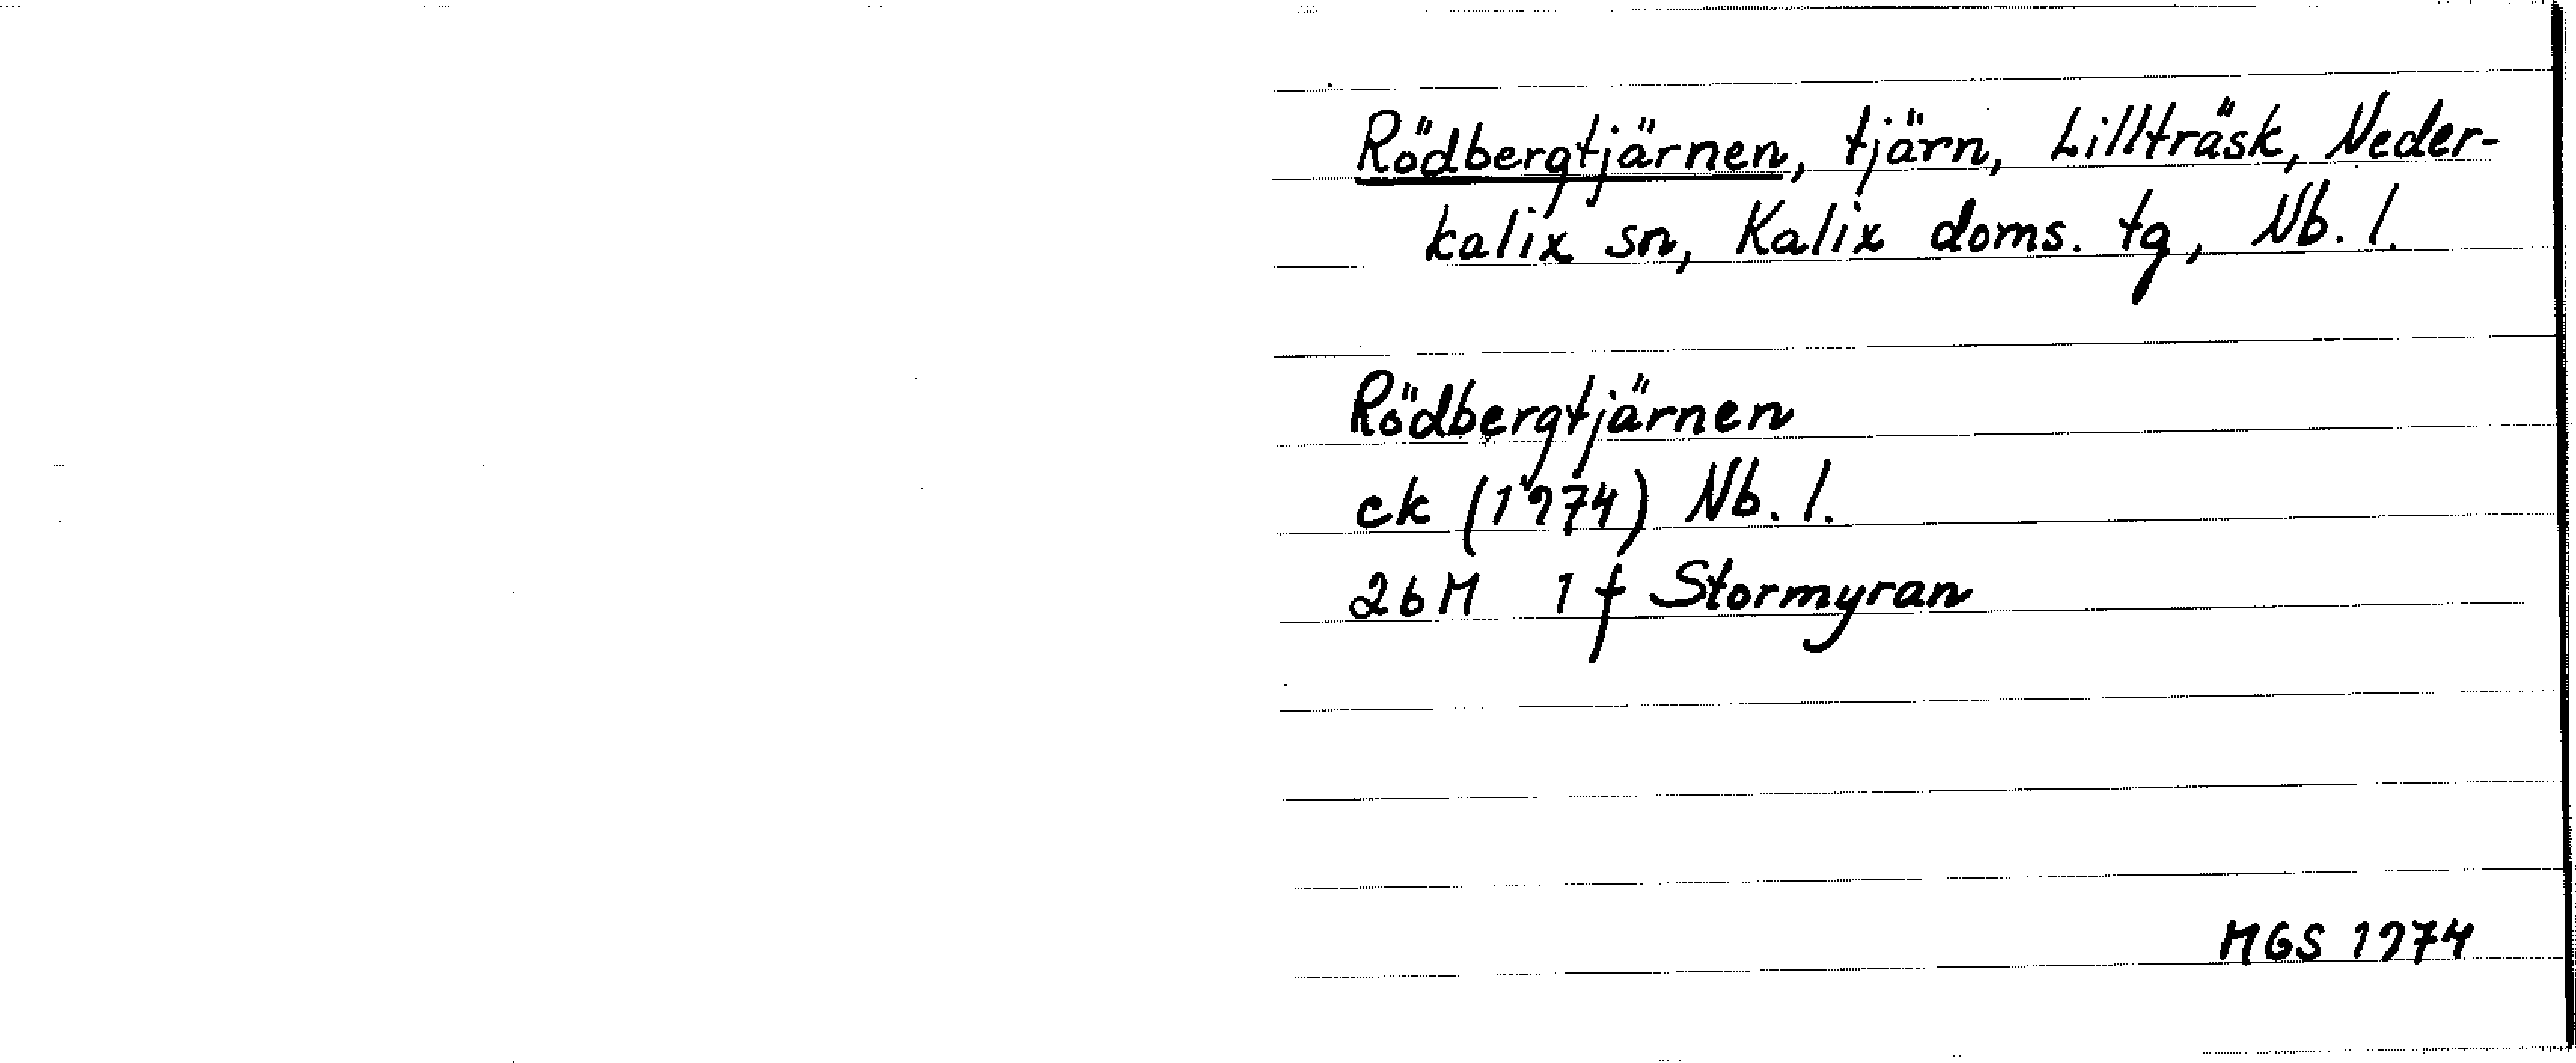 Rödbergtjärnen, tjärn, Lillträsk, Neder-
kalix sn, Kalix doms. tg, Nb. l.
Rödbergtjärnen
ek (1974) Nb. l.
26M 1 f Stormyran
MGS 1974